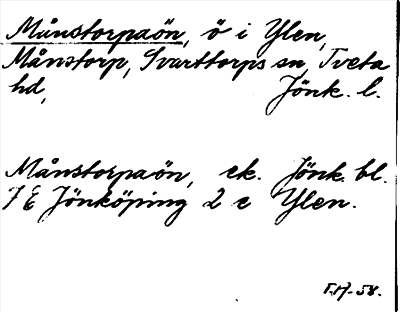 Månstorpaön, ö i Ylen,
Månstorp, Svarttorps sn Tveta
hd, Jönk. l.
Månstorpaön, ek. Jönk. bl.
7 E Jönköping 2 c Ylen.
58.